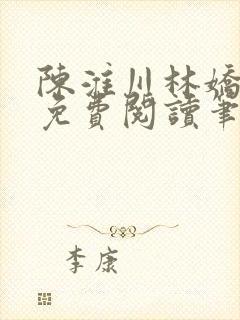 陳淮川林嬌
免費閱讀筆
李康